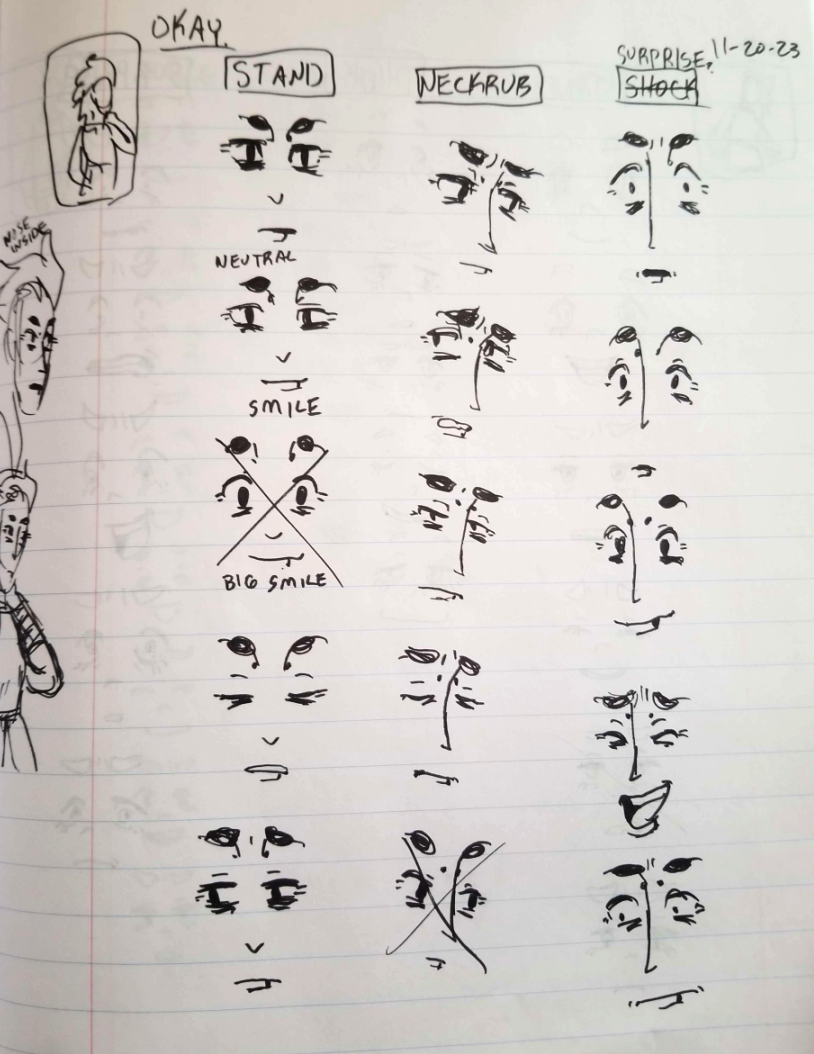 OKAY.
11-20-23
STAND
NECKRUB
SURPRISE,
SHOCK
NOSE
INSIDE
NEUTRAL
SMILE
BIG SMILE